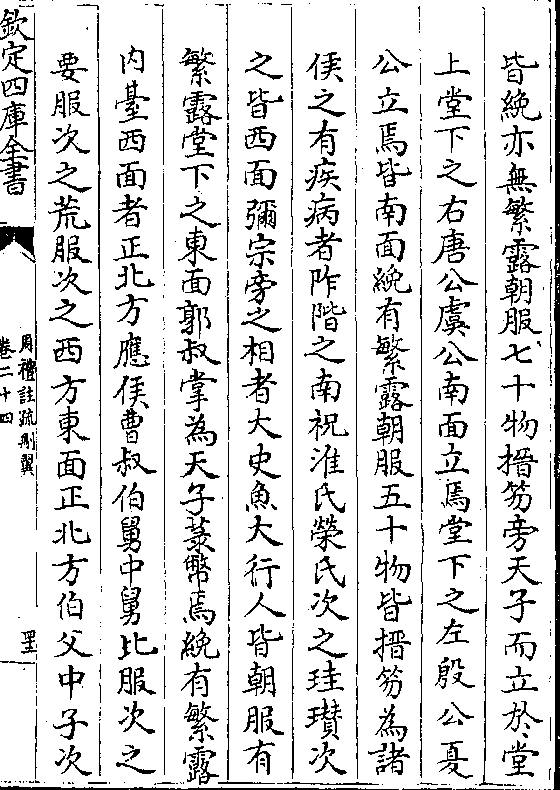 皆絻亦無繁露朝服七十物搢笏旁天子而立於堂
上堂下之右唐公虞公南面立焉堂下之左殷公夏
公立焉皆南面絻有繁露朝服五十物皆搢笏為諸
侯之有疾病者阼階之南祝淮氏榮氏次之珪瓚次
之皆西面彌宗旁之相者大史魚大行人皆朝服有
繁露堂下之東面郭叔掌為天子菉幣焉絻有繁露
内臺西面者正北方應侯曹叔伯舅中舅比服次之
要服次之荒服次之西方東面正北方伯父中子次
欽定四庫全書
周禮註疏刪翼
卷二十四